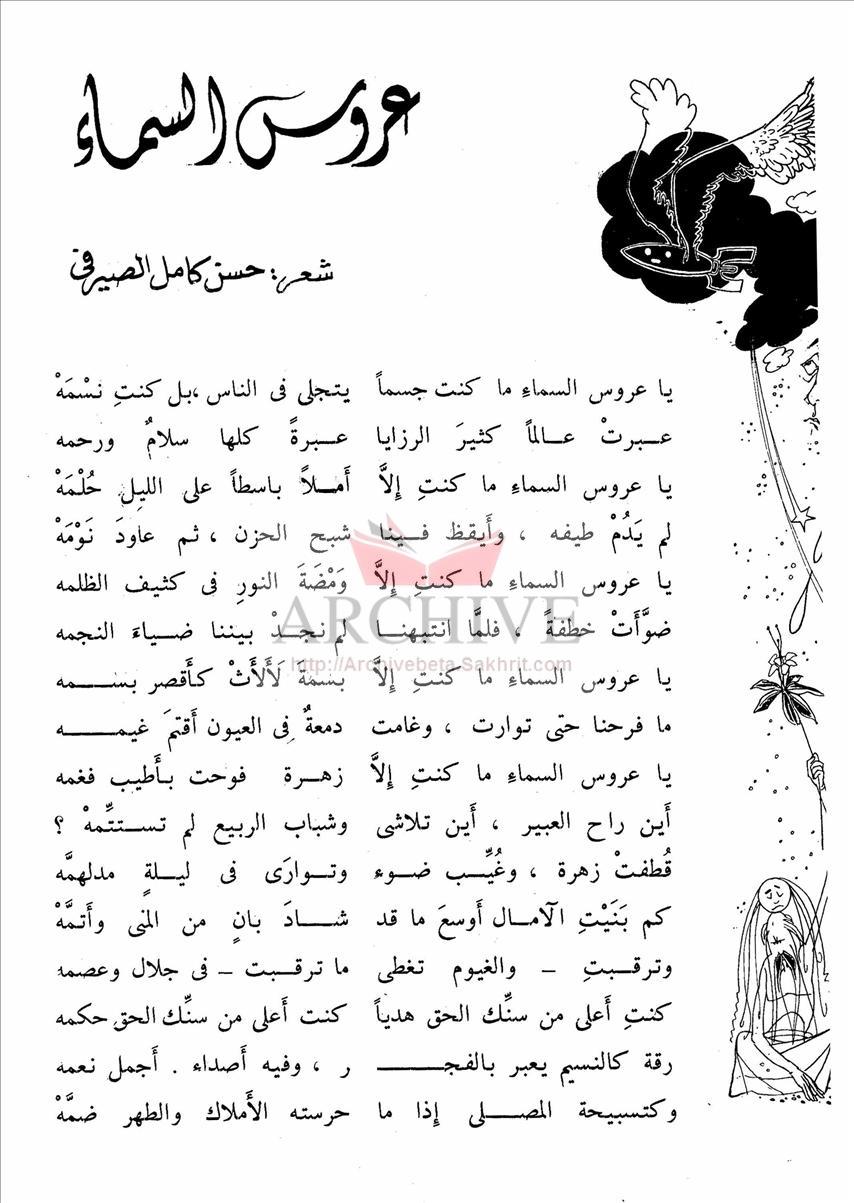 عروس السماء
شعر: حسن كامل الصيرفى
يا عروس السماءِ ما كنت جسماً يتجلى فى الناس ،بل كنتِ نسْمَهْ
عبرتْ عالماً كثيرَ الرزايا عبرةً كلها سلامٌ ورحمه
يا عروس السماءِ ما كنتِ إلاَّ أَملاً باسطاً على الليلِ حُلْمَهْ
لم يَدُمْ طيفه ، وأَيقظ فينا شبح الحزن ، ثم عاودَ نَوْمَهْ
يا عروس السماءِ ما كنتِ إلاَّ وَمْضَةَ النورِ فى كثيف الظلمه
ARCHIVE
ضوَّأَتْ خطفةً ، فلمَّا انتبهنا لم نجدْ بيننا ضياءَ النجمه
http://Archivebeta.Sakhrit.com
يا عروس السماءِ ما كنتِ إلاَّ بسمةً لَأْلَأَتْ كأَقصر بسمه
ما فرحنا حتى توارت ، وغامت دمعةٌ فِى العيون أَقتمَ غيمه
يا عروس السماءِ ما كنتِ إلاَّ زهرة فوحت بأَطيب فغمه
أَين راح العبير ، أَين تلاشى وشباب الربيع لم تستتمِّهْ ؟
قُطفتْ زهرة ، وغُيِّب ضوء وتوارَى فى ليلةٍ مدلهمَّه
كم بَنَيْتِ الآمال أَوسعَ ما قد شادَ بانٍ من المنى وأَتمَّهْ
وترقبتِ - والغيوم تغطى ما ترقبت - فى جلال وعصمه
كنتِ أَعلى من سنِّك الحق هدياً كنت أَعلى من سنِّك الحق حكمه
رقة كالنسيم يعبر بالفجـ ـر ، وفيه أصداء . أجمل نعمه
وكتسبيحة المصلى إذا ما حرسته الأَملاك والطهر ضمَّهْ